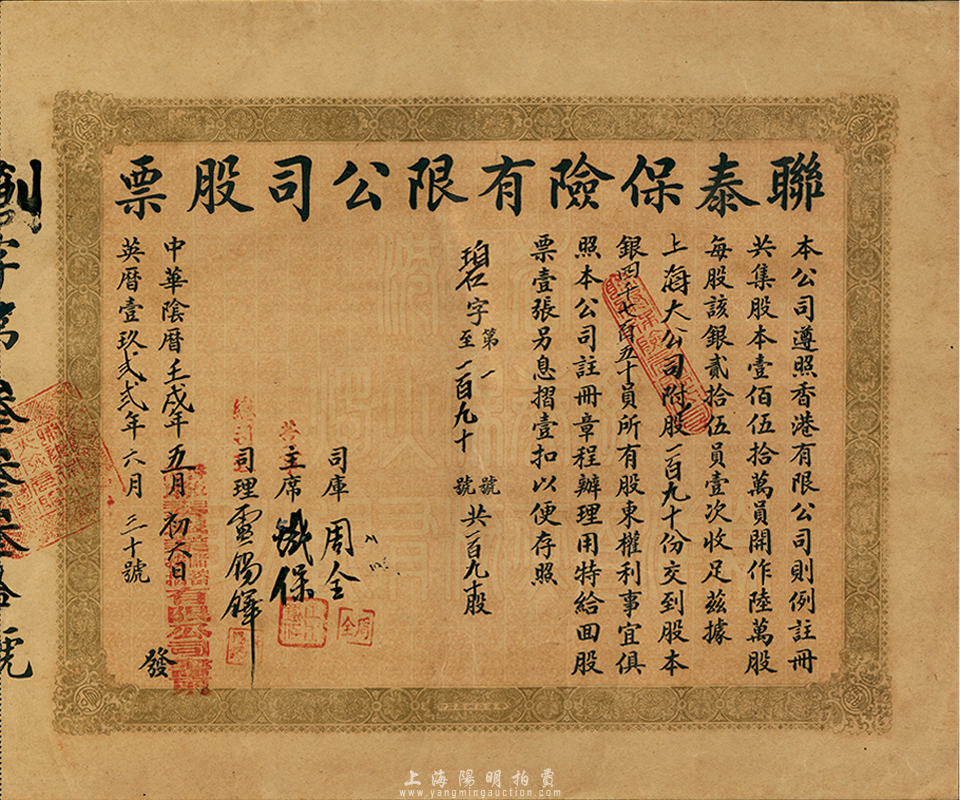 聯泰保險有限公司股票
本公司遵照香港有限公司則例註冊
共集股本壹佰伍拾萬員開作陸萬股
每股該銀貳拾伍員壹次收足茲據
上海大公司附股一百九十份交到股本
銀四千七百五十員所有股東權利事宜俱
照本公司註冊章程辦理用特給回股
票壹張另息摺壹扣以便存照
碧字第一號
至一百九十號共一百九十股
司庫 周全
主席
總司理
中華陰曆壬戌年五月初六日
英曆壹玖貳貳年六月三十號
發
上海陽明拍賣
www.yangmingauction.com